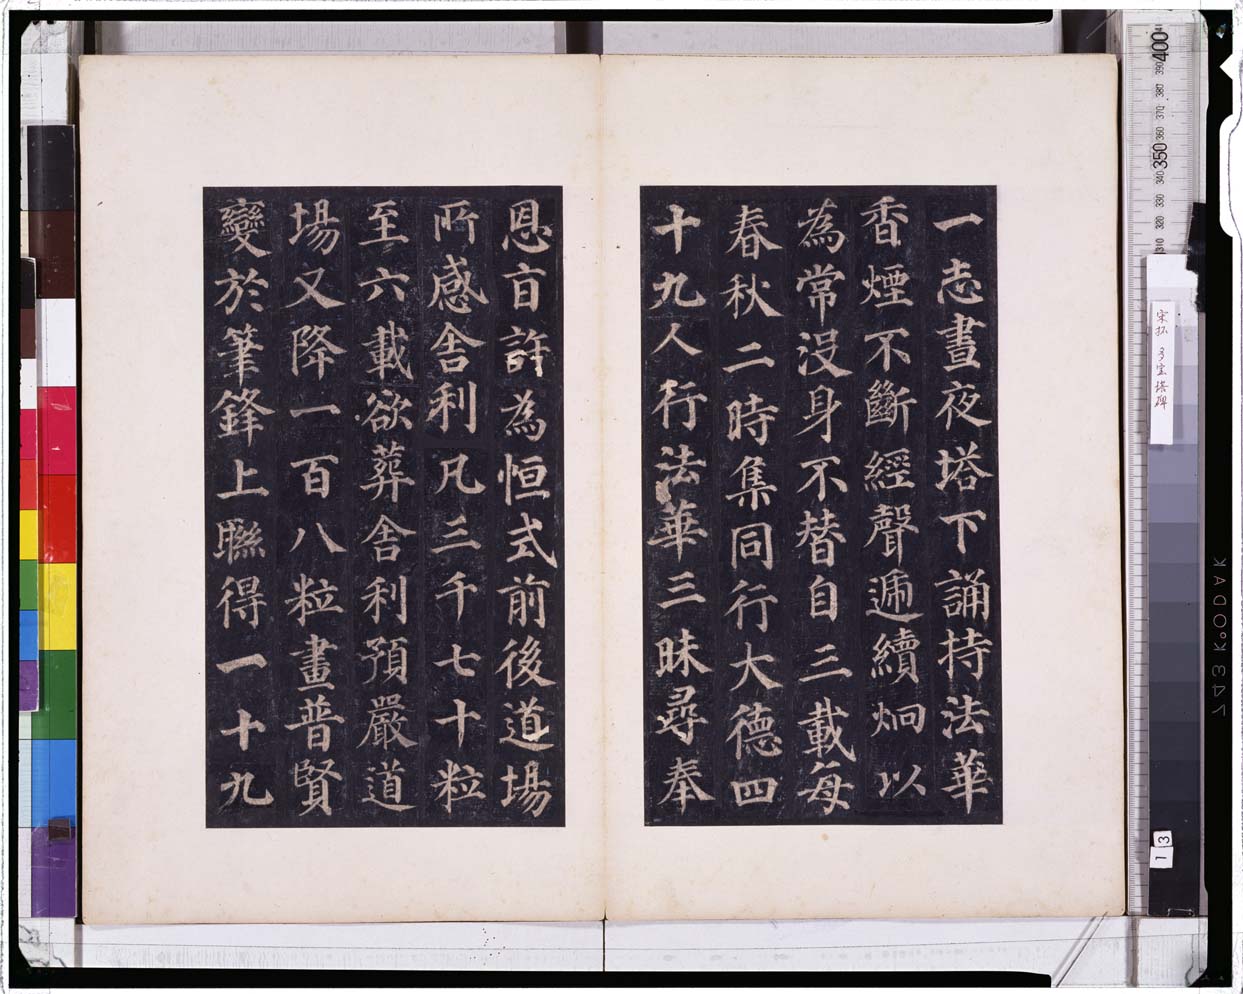 一志晝夜塔下誦持法華
香煙不斷經聲遞續炯以
為常沒身不替自三載每
春秋二時集同行大德四
十九人行法華三昧尋奉
恩旨許為恒式前後道場
所感舍利凡三千七十粒
至六載欲葬舍利預嚴道
場又降一百八粒畫普賢
變於筆鋒上聯得一十九
宋拓 多宝塔碑
400
390
380
370
360
350
340
330
320
310
13
743 KODAK